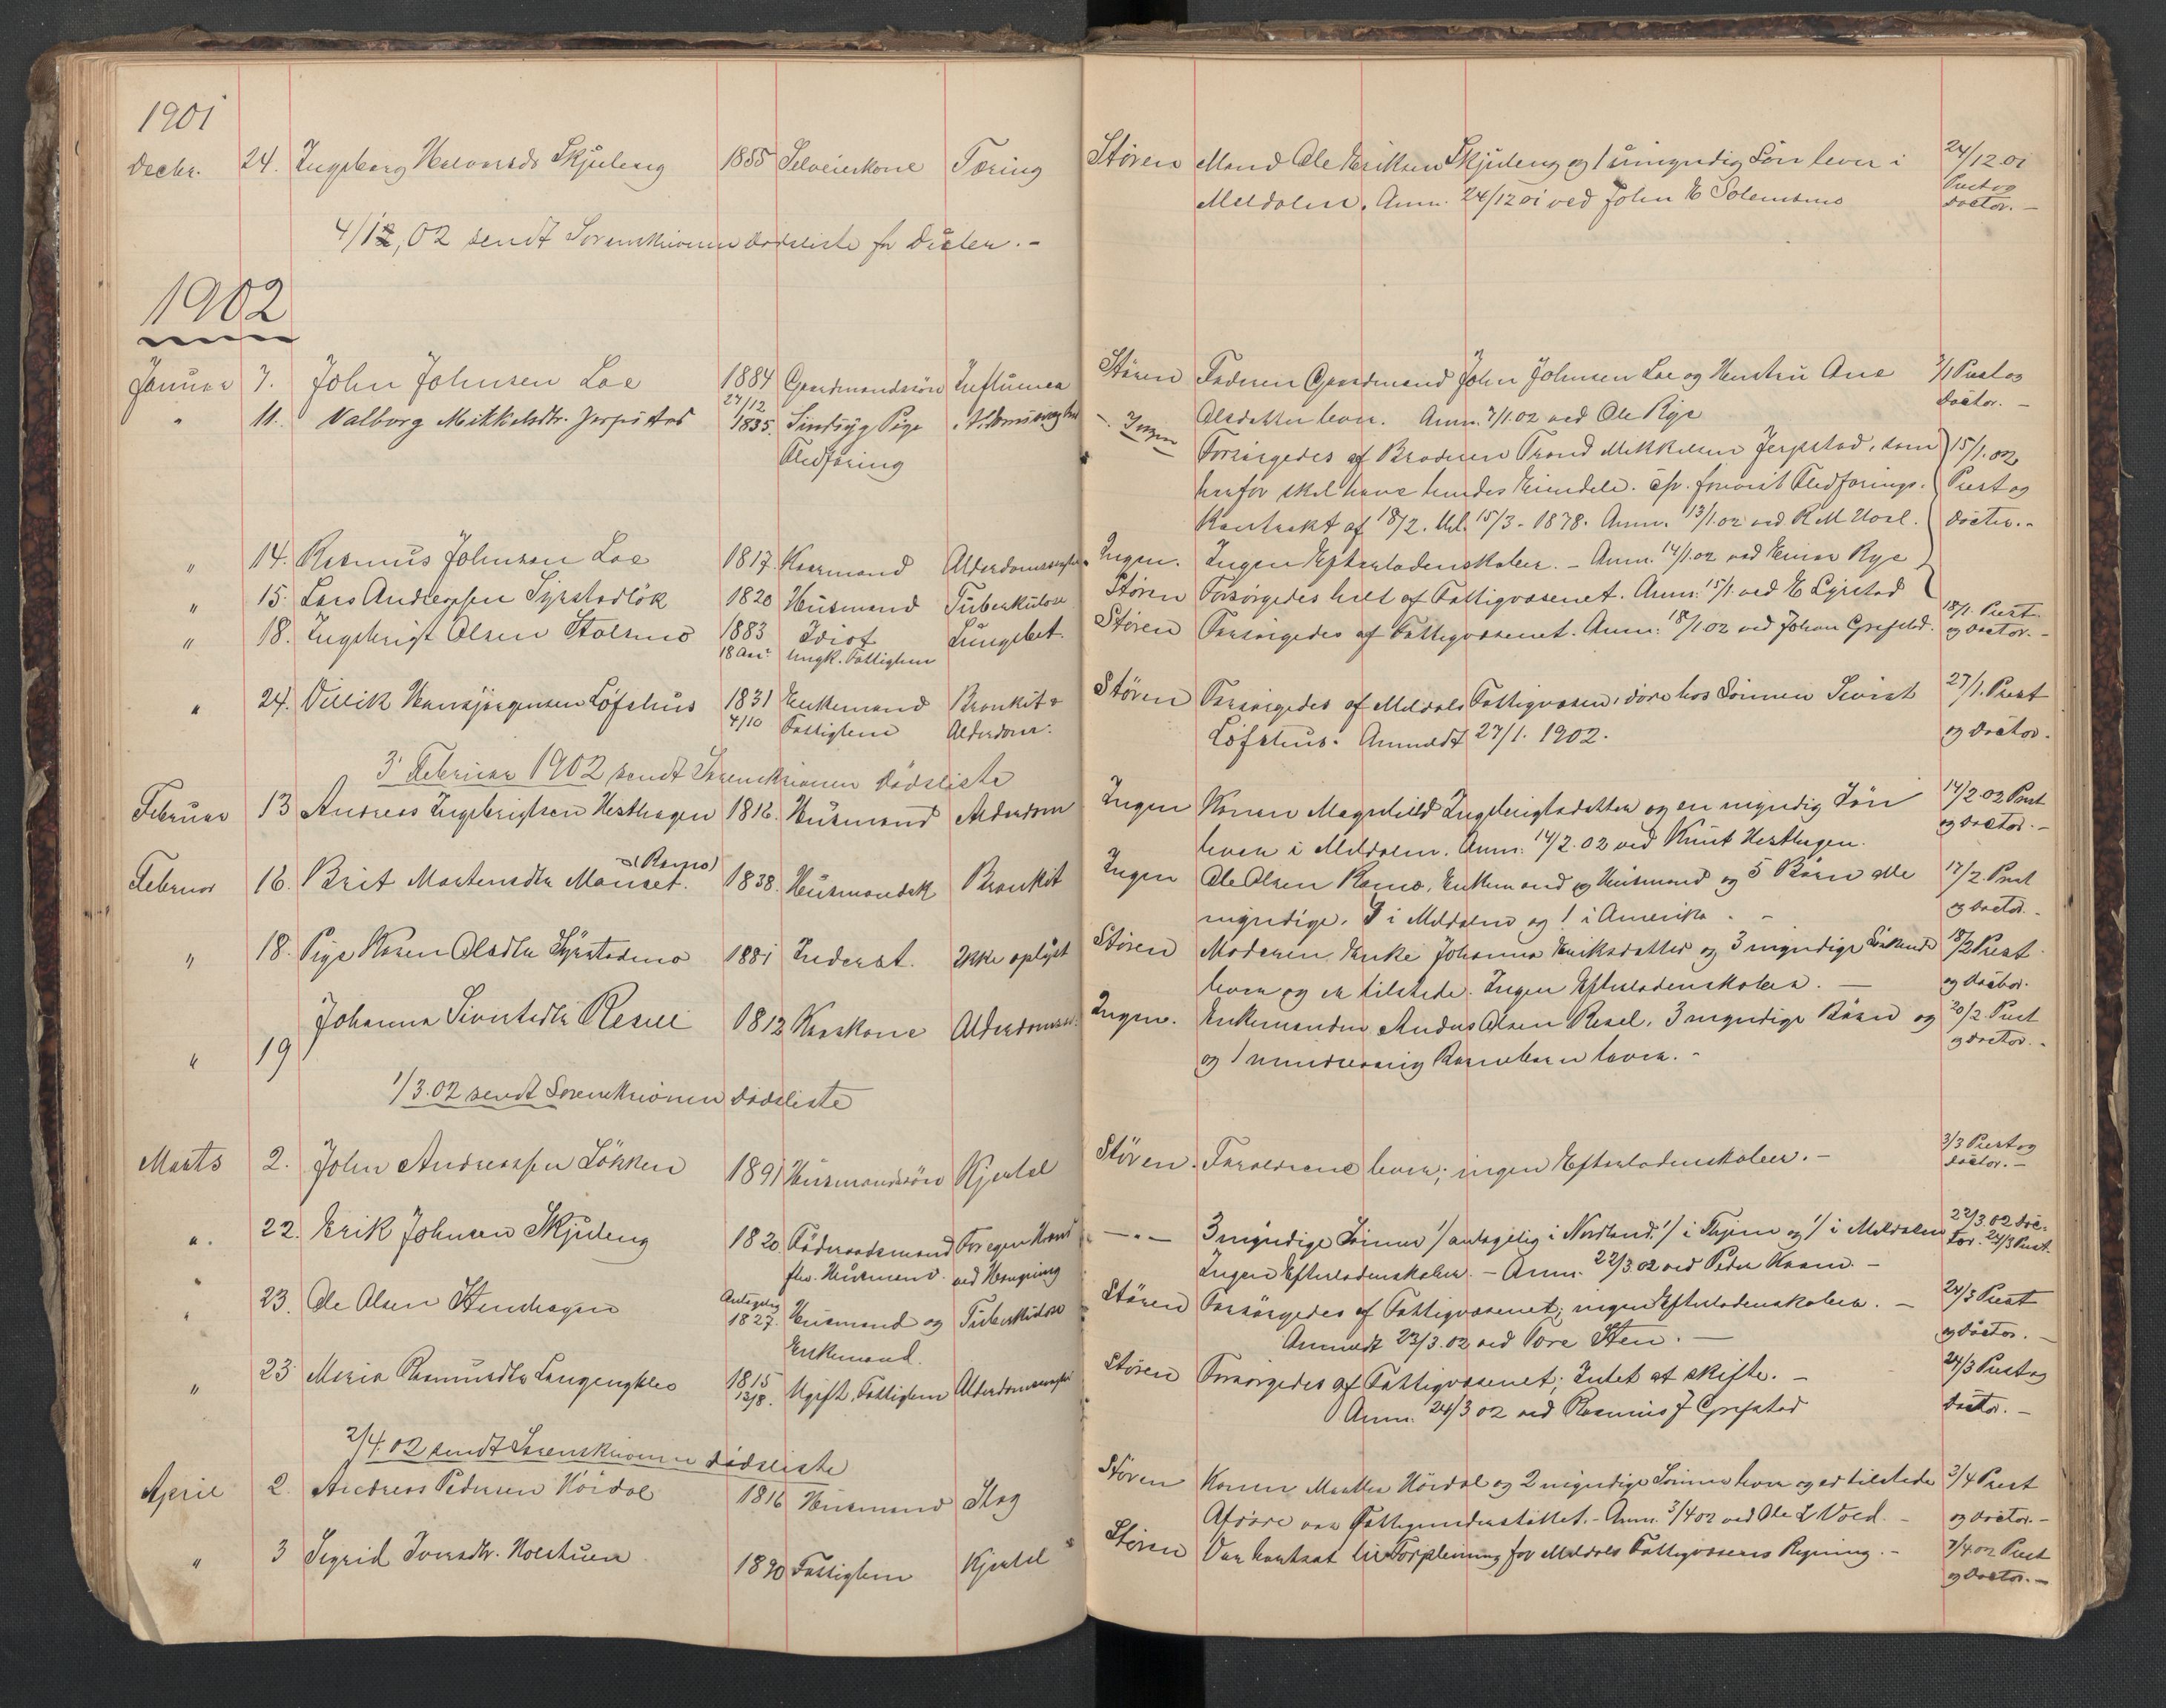 1901
Decbr. 24. Ingeborg Halvorsdr Skjuleng 1855 Selveierkone Tæring Støren Mand Ole Eriksen Skjuleng og 1 umyndig Søn lever i 24/12 01
Meldalen. Anm. 24/12 01 ved John E Solemsmo Prest og
doctor. -
4/12, 02 sendt Sorenskriveren dødsliste for Decbr. -
1902
Januar 7. John Johnsen Loe 1884 Gaardmandssøn Influensa Støren Faderen Gaardmand John Johnsen Loe og Hustru Ane 7/1 Prest og
27/12 Olsdatter lever. Anm. 7/1.02 ved Ole Rye doctor. -
" 11. Valborg Mikkelsdtr. Jerpstad 1835. Sindsyg Pige Ingen Forsørgedes af Broderen Trond Mikkelsen Jerpstad, som 15/1.02
Fledføring herfor skal have hendes Eiendele. Fledførings- Prest og
Kontrakt af 18/2. 15/3 - 1878. Anm. 13/1.02 ved doctor. -
" 14. Rasmus Johnsen Loe 1817. Kaarmand Ingen. Ingen Efterladenskaber. - Anm. 14/1.02 ved Einar Rye
" 15. Lars Andreassen Syrstadløk 1820 Husmand Tuberkulose Støren Forsørgedes helt af Fattigvæsenet. Anm. 15/1. ved E Syrstad
" 18. Ingebrigt Olsen Stolsmo 1883 Idiot Lungebet. Støren Forsørgedes af Fattigvæsenet. Anm. 18/1.02 ved Johan Grefstad. 18/1. Prest
Ungk. Fattiglem og doctor. -
" 24. Villik Hansjørgensen Løfshus 1831 Enkemand Bronkit & Støren Forsørgedes af Meldals Fattigvæsen, døde hos Sønnen Sivert 27/1. Prest
4/10 Fattiglem Alderdom. Løfshus. Anmeldt 27/1. 1902. og doctor.
3 Februar 1902 sendt Sorenskriveren dødsliste
Februar 13 Andreas Ingebrigtsen Hesthagen 1816. Husmand Alderdom Ingen Konen Magnhild Ingebrigtsdatter og en myndig Søn 14/2 02 Prest
lever i Meldalen. Anm. 14/2.02 ved Knut Hesthagen. og doctor. -
(Ramo)
Februar 16. Brit Mortensdtr Manset. 1838. Husmandsk Bronkit Ingen Ole Olsen Ramo, Enkemand og Husmand og 5 Børn alle 17/2. Prest
myndige. i Meldalen og 1 i Amerika. - og doctor. -
" 18. Pige Karen Olsdtr Syrstadmo 1881 Inderst. Ikke oplyst Støren Moderen, Enke Johanna Eriksdatter og 3 myndige Søskende 18/2 Prest
lever og er tilstede. Ingen Efterladenskaber. - og doctor.
" 19 Johanna Sivertsdtr Resell 1812 Kaarkone Ingen. Enkemanden Anders Olsen Resel, 3 myndige Børn og 20/2. Prest
og 1 mindreaarig Barnebarn lever. - og doctor. -
1/3.02 sendt Sorenskriveren dødsliste
Marts 2. John Andreassen Løkken 1891 Husmandssøn Kjertel Støren. Forældrene lever; ingen Efterladenskaber. - 3/3 Prest og
doctor. -
" 22. Erik Johnsen Skjuleng 1820 Føderaadsmand For egen Haand - " - 3 myndige Sønner 1/ antagelig i Nordland. 1/ i Thjem og 1/ i Meldalen 22/3.02 doc-
fhv. Husmand. ved Hængning Ingen Efterladenskaber. - Anm. 22/3.02 ved Peder Kaam. - tor. 24/3 Prest.
" 23. Ole Olsen Stenshagen Antagelig Husmand og Tuberkulose Støren Forsørgedes af Fattigvæsenet; ingen Efterladenskaber. - 24/3 Prest
1827. Enkemand. Anmeldt 23/3.02 ved Tore Sten. - og doctor. -
" 23 Marie Rasmusdtr Langengkleo 1815 Ugift, Fattiglem Støren Forsørgedes af Fattigvæsenet; Intet at skifte. - 24/3 Prest og
12/8. Anm. 24/3 02 ved Rasmus J Grefstad doctor. -
2/4.02 sendt Sorenskriveren dødsliste
April 2. Andreas Pedersen Hørdal 1816 Husmand Slag Støren Konen Marthe Hørdal og 2 myndige Sønner lever og er tilstede 3/4 Prest
Afdøde var Fattigunderstøttet. - Anm. 3/4 02 ved Ole L Vold. - og doctor. -
" 3 Sigrid Iversdtr. Holstuen 1890 Fattiglem Kjertel Støren Var bortsat til Forpleining for Meldals Fattigvæsens Regning. - 7/4.02 Prest
og doctor. -